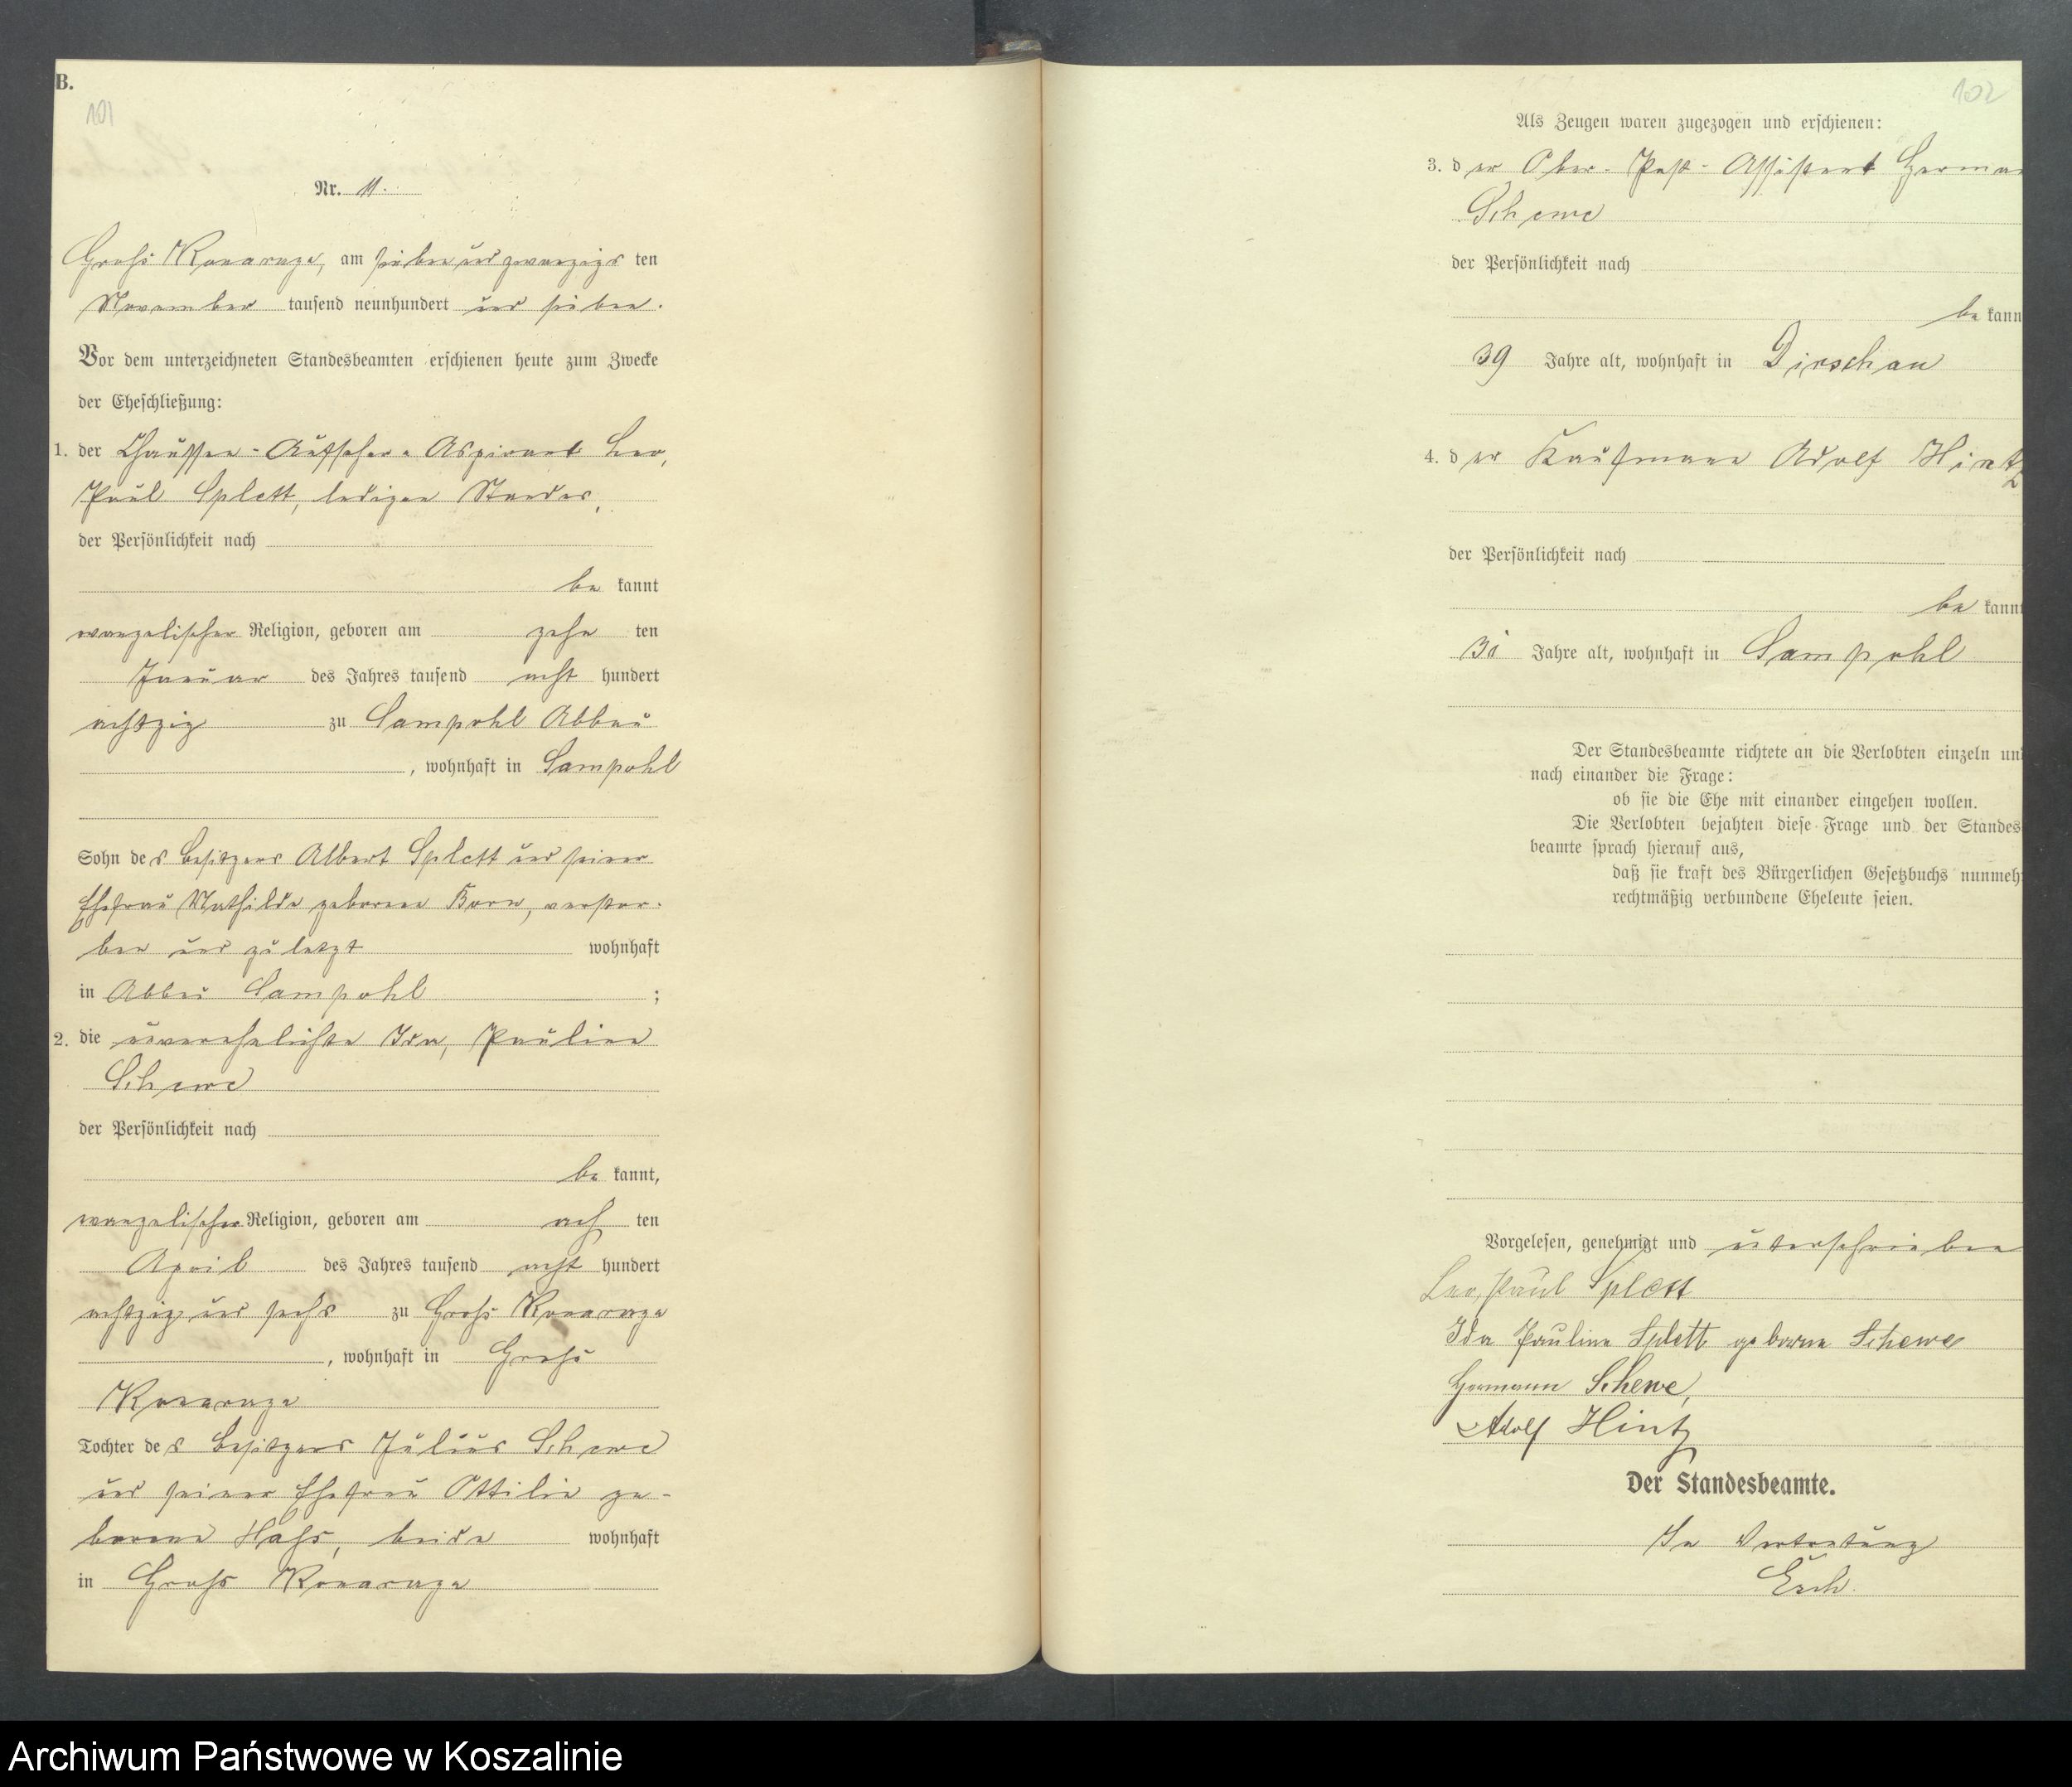 B.
101
Nr. 11.
Groß Konarzyn, am sieben und zwanzigs ten
November tausend neunhundert und sieben.
Vor dem unterzeichneten Standesbeamten erschienen heute zum Zwecke
der Eheschließung:
1. der Chaussee-Aufseher-Aspirant Leo,
Paul Splett, ledigen Standes,
der Persönlichkeit nach
be kannt
evangelischer Religion, geboren am zehn ten
Januar des Jahres tausend acht hundert
achtzig zu Sampohl Abbau
, wohnhaft in Sampohl
Sohn des Besitzers Albert Splett und seiner
Ehefrau Mathilde geborene Born, verstor-
ben und zuletzt wohnhaft
in Abbau Sampohl ;
2. die unverehelichte Ida, Pauline
Schewe
der Persönlichkeit nach
be kannt,
evangelischer Religion, geboren am ach ten
April des Jahres tausend acht hundert
achtzig und sechs zu Groß
, wohnhaft in Groß
Tochter des Besitzers Julius Schewe
und seiner Ehefrau Ottilie ge-
borene Haß, beide wohnhaft
in Groß
102
Als Zeugen waren zugezogen und erschienen:
3. der Ober-Post-Assistent Herman
Schewe
der Persönlichkeit nach
be kann
39 Jahre alt, wohnhaft in Dirschau
4. der Kaufmann Adolf Hintz
der Persönlichkeit nach
be kann
Jahre alt, wohnhaft in Sampohl
Der Standesbeamte richtete an die Verlobten einzeln un
nach einander die Frage:
ob sie die Ehe mit einander eingehen wollen.
Die Verlobten bejahten diese Frage und der Standes
beamte sprach hierauf aus,
daß sie kraft des Bürgerlichen Gesetzbuchs nunmeh
rechtmäßig verbundene Eheleute seien.
Vorgelesen, genehmigt und unterschrieben
Leo, Paul Splett
Ida Pauline Splett geborne Schewe
Hermann Schewe,
Adolf Hintz
Der Standesbeamte.
In Vertretung
Esch.
Archiwum Państwowe w Koszalinie